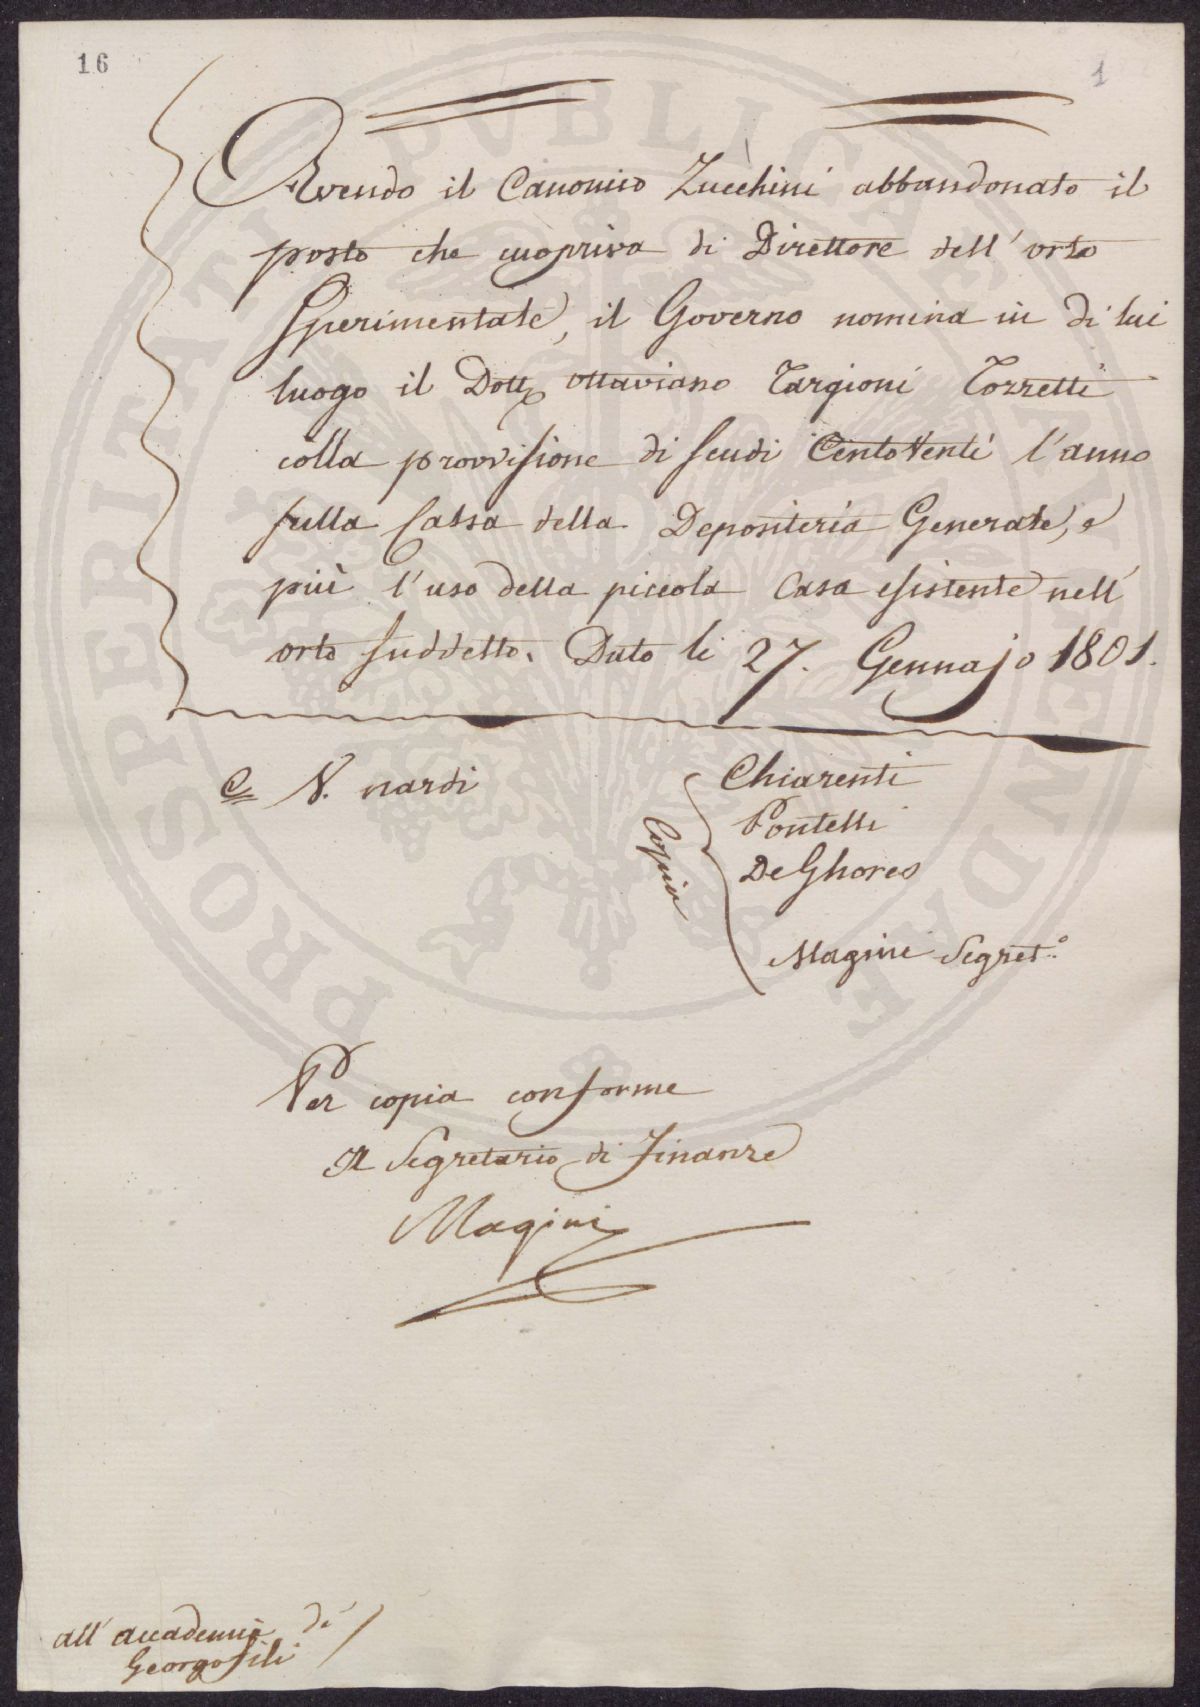 16
1
Avendo il Canonico Zucchini abbandonato il
posto che cuopriva di Direttore dell' orto
Sperimentale, il Governo nomina in di lui
luogo il Dott. Ottaviano Targioni Tozzetti
colla provvisione di scudi CentoVenti l'anno
sulla Cassa della Depositeria Generale, e
più l'uso della piccola Casa esistente nell'
orto suddetto. Dato li 27. Gennajo 1801.
C. V. nardi
Copia
Chiarenti
Pontelli
De Ghores
Magini Segret.º
Per copia conforme
Il Segretario di Finanze
Magini
all' accademia de'
Georgofili
PROSPERITATI PVBLICAE AVGENDAE